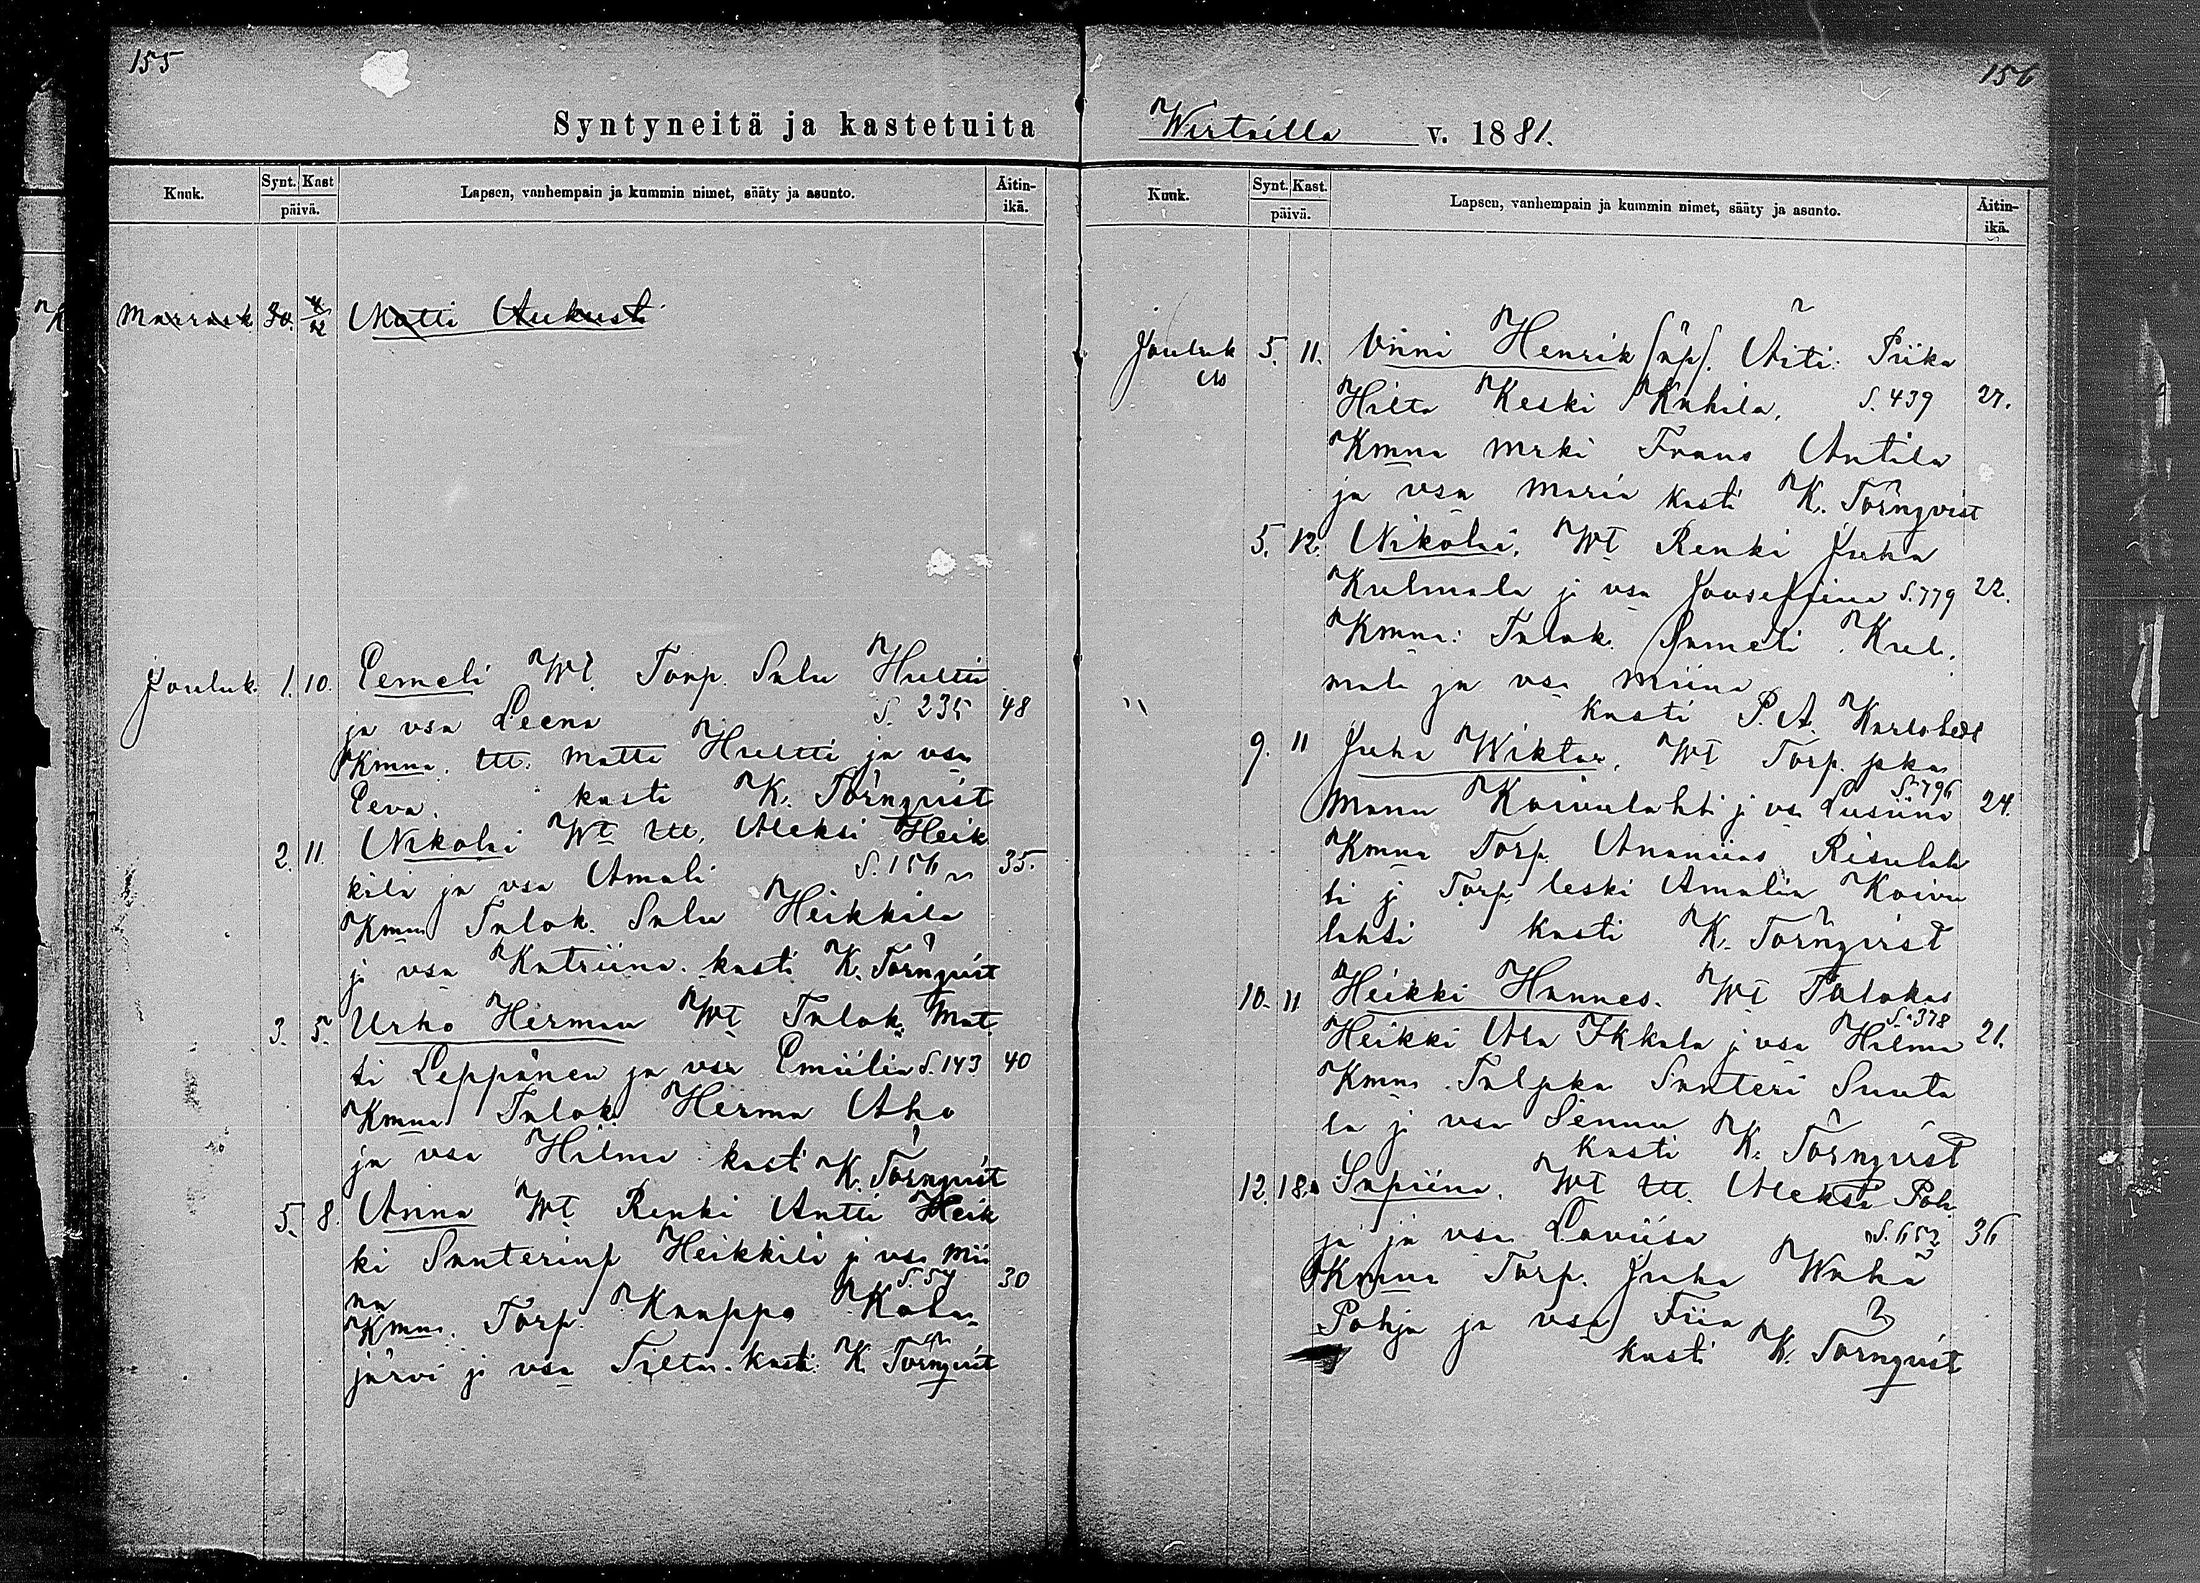 155
Syntyneitä ja kastetuita
Kuuk.
Synt. Kast
päivä.
Lapsen, vanhempain ja kummin nimet, sääty ja asunto.
Äitin-
ikä.
Marrask. 30. 4/12 Matti Aukusti
Jouluk. 1. 10. Eemeli Wt Torp. Salu Hultti
ja vsa Leena S. 235 48
Kmna. Itt. Matti Hultti ja vsa
Eeva. kasti K. Törnqvist
2. 11. Nikolai Wt Itt. Aleksi Heik
kilä ja vsa Amali S. 156 35.
Kmna Talok. Salu Heikkilä
j vsa Katriina. kasti K. Törnqvist
3. 5. Urho Herman Wt Talok. Mat.
ti Leppänen ja vsa Emiilia S. 143 40
Kmna Talok. Herma Aho
ja vsa Hilma kasti K. Törnqvist
5. 8. Anna Wt Renki Antti Heik
ki Santerinp Heikkilä j vsa Mii
na S. 57 30
Kmna. Torp. Kaappo Kola-
järvi j vsa Tilta. kasti K. Törnqvist
156
Wirtailla v. 1881.
Kuuk.
Synt. Kast.
päivä.
Lapsen, vanhempain ja kummin nimet, sääty ja asunto.
Äitin-
ikä.
Jouluk 5. 11. Vinni Henrik (äp). Äiti: Piika
Hilta Keski Kahila. S. 439 27.
Kmna Mrki Frans Antila
ja vsa Maria kasti K. Törnqvist
5. 12. Nikolai. Wt Renki Juha
Kulmala j vsa Joosefiina S. 779 22.
Kmna: Talok. Sameli Kul.
mala ja vsa Miina
" kasti P. A. Karlstedt
9. 11 Juha Wiktor. Wt Torp. pka
S. 796
Manu Koivulahti j vs Lusiina 24.
Kmna Torp. Ananias Risulah
ti j Torp leski Amalia Koivu
lahti kasti K. Törnqvist
10. 11 Heikki Hannes. Wt Talokas
S. 378
Heikki Ala Ikkala j vsa Hilma 21.
Kmna Talpka Santeri Suuta
la j vsa Senna
kasti K. Törnqvist
12. 18. Sapiina. Wt Itt. Aleksi Poh
ja ja vsa Loviisa S. 652 36
Kmna Torp. Juha Wähä
Pohja ja vsa Fiia
kasti K. Törnqvist